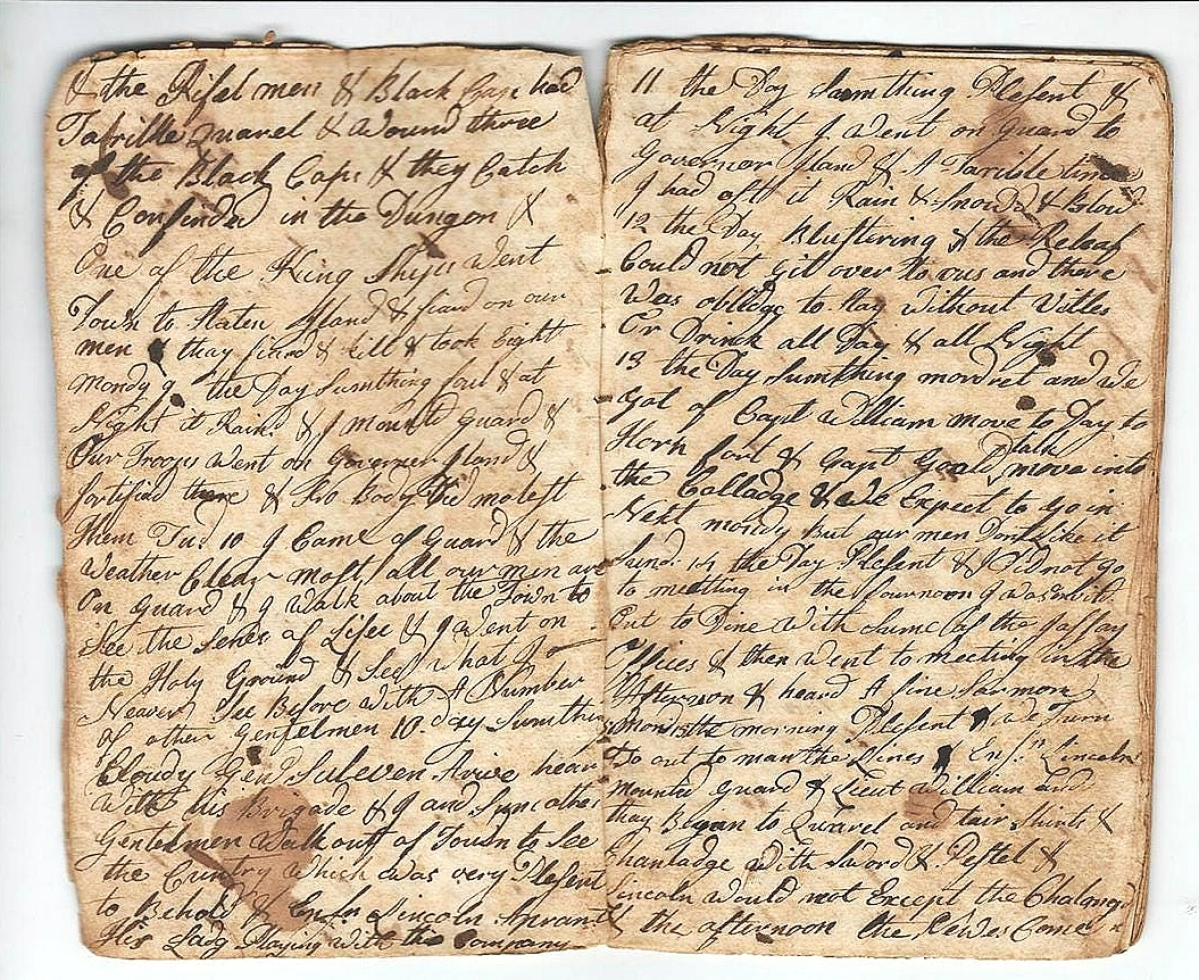 & the Rifel men & Black Caps had
Tarrible Quarel & Wound three
of the Black Caps & they Catch
& Confended in the Dungon &
One of the King Ships Went
Down to Staten Island & fiard on our
men & thay fiard & kill & took Eight
Mondy 9 the Day Sumthing foul & at
Night it Rain & I mount Guard &
Our Troops Went on Governer Iland &
fortified there & No Body Did molest
Them Tusd 10 I Came of Guard & the
Weather Clear most all our men are
On Guard & I Walk about the Town to
See the Senes of Lifee & I Went on
the Holy Ground & See what I
Neaver See Before With A Number
of other Gentelmen 10 day Sumthing
Cloudy Genl Suleven Arive hear
With his Brigade & I and Sum other
Gentelmen Walk out of Town to See
the Cuntry Which was very Plesent
to Behold & Ensn Lincoln
His Lady Playing With the Company
11 the Day Sumthing Plesent &
at Night I Went on Guard to
Governor Iland & A Tarible time
I had oft it Rain & Snowd & Blow
12 the Day Blustering & the Releaf
Could not git over to us and there
Was obllidge to Stay Without Vitles
Or Drink all Day & all Night
13 the Day Sumthing mordret and We
Got of Capt William move to Day to
Horn fort & Capt Goald talk move into
the Colladge & We Expect to go in
Next mondy But our men Dont like it
Sund. 14 the Day Plesent & I Did not go
to metting in the fournoon I was
Out to Dine With Sume of the
Offices & then Went to meeting in the
Afternoon & heard A fine Sarmon
Mon 15 the morning Plesent & We Turn
To out to man the Lines & Ensn Lincoln
mounted Guard & Lieut William and
thay Began to Quarel and tair Shirts &
Chanladge With Sword & Pestel &
Lincoln Would not Except the Chalongd
& the afternoon the Come in